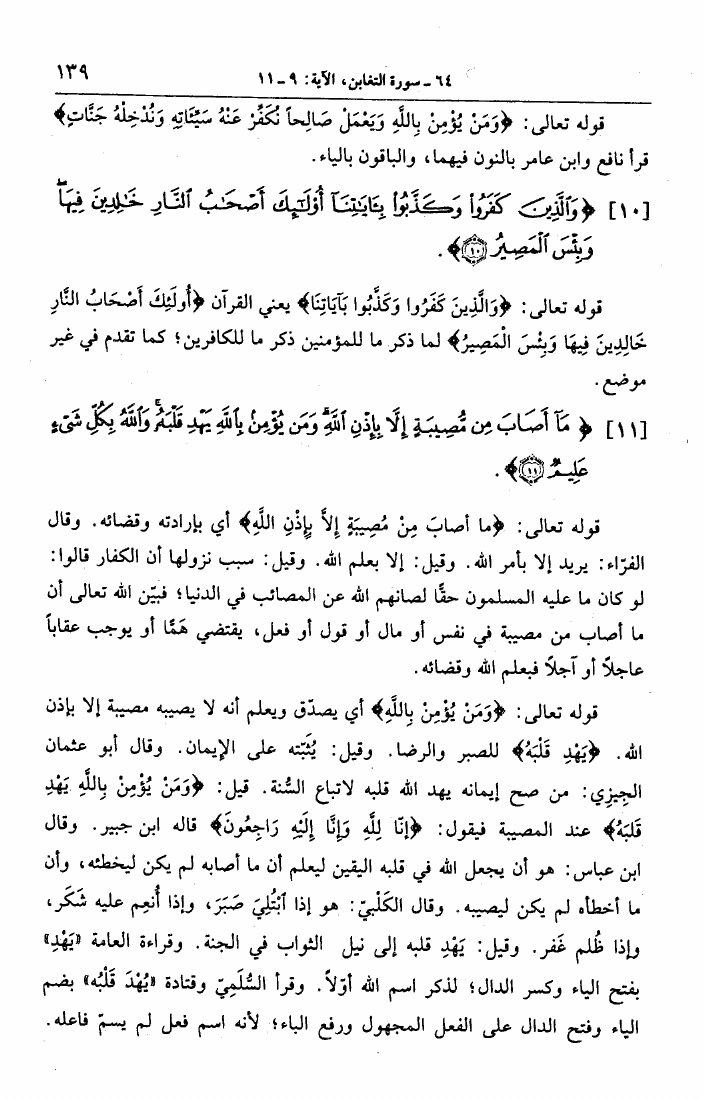 ٦٤ ـ سورة التغابن، الآية: ٩ ـ ١١
١٣٩
قوله تعالى: ﴿وَمَنْ يُؤْمِنْ بِاللَّهِ وَيَعْمَلْ صَالِحاً نُكَفِّرْ عَنْهُ سَيِّئَاتِهِ وَنُدْخِلْهُ جَنَّاتٍ﴾
قرأ نافع وابن عامر بالنون فيهما، والباقون بالياء.
[١٠] ﴿وَٱلَّذِينَ كَفَرُوا۟ وَكَذَّبُوا۟ بِـَٔايَـٰتِنَآ أُو۟لَـٰٓئِكَ أَصْحَـٰبُ ٱلنَّارِ خَـٰلِدِينَ فِيهَاۖ
وَبِئْسَ ٱلْمَصِيرُ ١٠﴾.
قوله تعالى: ﴿وَالَّذِينَ كَفَرُوا وَكَذَّبُوا بِآيَاتِنَا﴾ يعني القرآن ﴿أُولَئِكَ أَصْحَابُ النَّارِ
خَالِدِينَ فِيهَا وَبِئْسَ الْمَصِيرُ﴾ لما ذكر ما للمؤمنين ذكر ما للكافرين؛ كما تقدم في غير
موضع.
[١١] ﴿مَآ أَصَابَ مِن مُّصِيبَةٍ إِلَّا بِإِذْنِ ٱللَّهِۗ وَمَن يُؤْمِنۢ بِٱللَّهِ يَهْدِ قَلْبَهُۥۚ وَٱللَّهُ بِكُلِّ شَىْءٍ
عَلِيمٌ ١١﴾.
قوله تعالى: ﴿ما أصابَ مِنْ مُصِيبَةٍ إِلاَّ بِإِذْنِ اللَّهِ﴾ أي بإرادته وقضائه. وقال
الفرّاء: يريد إلا بأمر الله. وقيل: إلا بعلم الله. وقيل: سبب نزولها أن الكفار قالوا:
لو كان ما عليه المسلمون حقًّا لصانهم الله عن المصائب في الدنيا؛ فبيّن الله تعالى أن
ما أصاب من مصيبة في نفس أو مال أو قول أو فعل، يقتضي هَمًّا أو يوجب عقاباً
عاجلاً أو آجلاً فبعلم الله وقضائه.
قوله تعالى: ﴿وَمَنْ يُؤْمِنْ بِاللَّهِ﴾ أي يصدّق ويعلم أنه لا يصيبه مصيبة إلا بإذن
الله. ﴿يَهْدِ قَلْبَهُ﴾ للصبر والرضا. وقيل: يُثَبّته على الإيمان. وقال أبو عثمان
الجِيزي: من صح إيمانه يهد الله قلبه لاتباع السُّنة. قيل: ﴿وَمَنْ يُؤْمِنْ بِاللَّهِ يَهْدِ
قَلبَهُ﴾ عند المصيبة فيقول: ﴿إِنَّا لِلَّهِ وَإِنَّا إِلَيْهِ رَاجِعُونَ﴾ قاله ابن جبير. وقال
ابن عباس: هو أن يجعل الله في قلبه اليقين ليعلم أن ما أصابه لم يكن ليخطئه، وأن
ما أخطأه لم يكن ليصيبه. وقال الكَلْبيّ: هو إذا ٱبْتُلِيَ صَبَرَ، وإذا أُنعِم عليه شَكَر،
وإذا ظُلم غَفر. وقيل: يَهْدِ قلبه إلى نيل الثواب في الجنة. وقراءة العامة «يَهْدِ»
بفتح الياء وكسر الدال؛ لذكر اسم الله أوّلاً. وقرأ السُّلَمِيّ وقتادة «يُهْدَ قَلْبُه» بضم
الياء وفتح الدال على الفعل المجهول ورفع الباء؛ لأنه اسم فعل لم يسمّ فاعله.